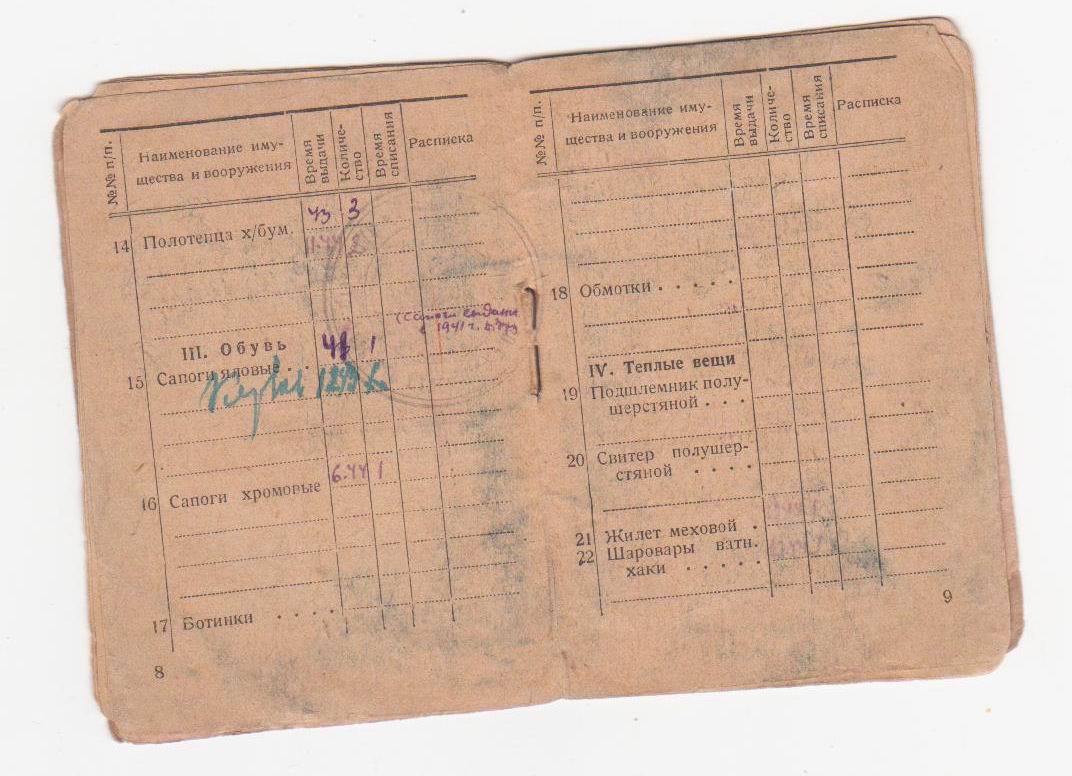 №№ п/п.
Наименование иму-
щества и вооружения
Время
выдачи
Количе-
ство
Время
списания
Расписка
43 3
14 Полотенца х/бум.
11.44 2
(Сапоги выданы
1941 г.
III. Обувь
41 1
15 Сапоги яловые .
16 Сапоги хромовые 6.44 1
17 Ботинки . . . .
8
№№ п/п.
Наименование иму-
щества и вооружения
Время
выдачи
Количе-
ство
Время
списания
Расписка
18 Обмотки . . . . .
IV. Теплые вещи
19 Подшлемник полу-
шерстяной . . .
20 Свитер полушер-
стяной . . . .
21 Жилет меховой .
22 Шаровары ватн.
хаки . . . . .
9